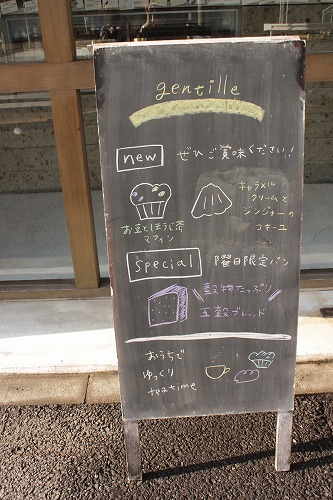 gentille
new ぜひご賞味ください！
お豆とほうじ茶
マフィン
キャラメル
クリームと
ジンジャーの
コキーユ
Special 曜日限定パン
穀物たっぷり
五穀ブレッド
おうちで
ゆっくり
teatime